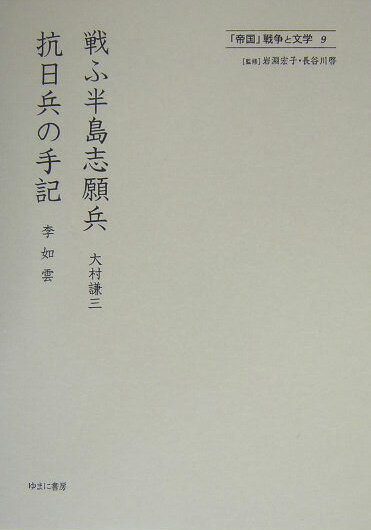 「帝国」戦争と文学 9
[監修] 岩淵宏子・長谷川啓
戦ふ半島志願兵 大村謙三
抗日兵の手記 李如雲
ゆまに書房